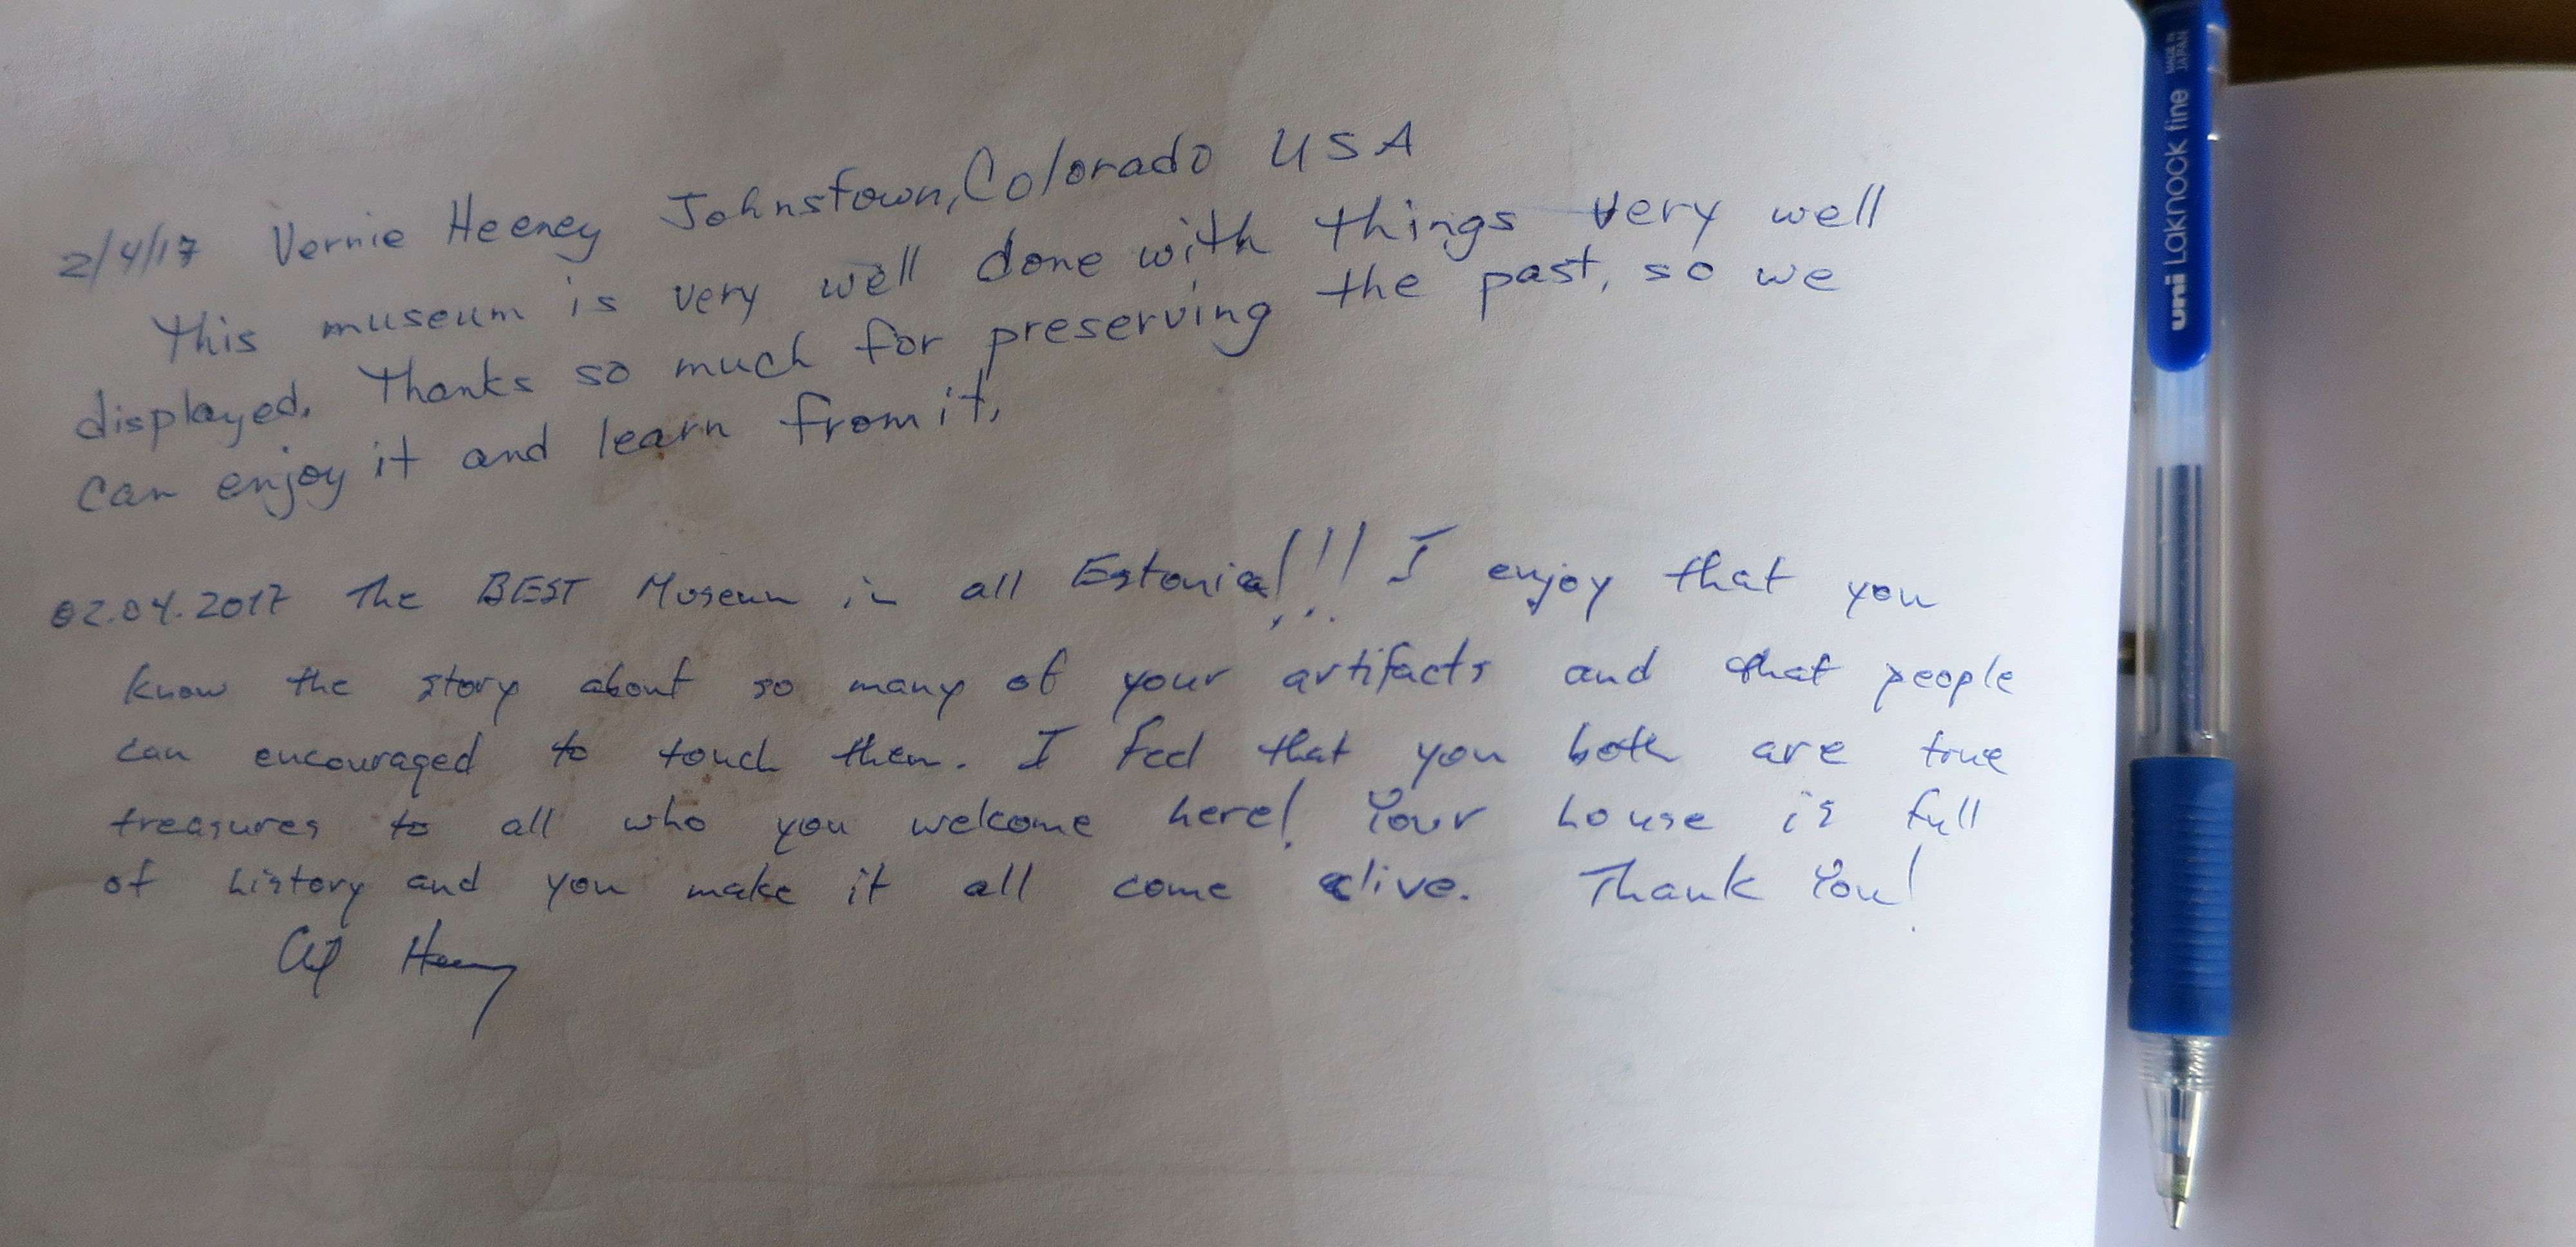 2/4/17 Vernie Heeney Johnstown, Colorado USA
This museum is very well done with things very well
displayed. Thanks so much for preserving the past, so we
can enjoy it and learn from it.
02.04.2017 The BEST Museum in all Estonia!!! I enjoy that you
know the story about so many of your artifacts and that people
can encouraged to touch them. I feel that you both are true
treasures to all who you welcome here! Your house is full
of history and you make it all come alive. Thank You!
Heeney
uni Laknock fine MADE IN
JAPAN